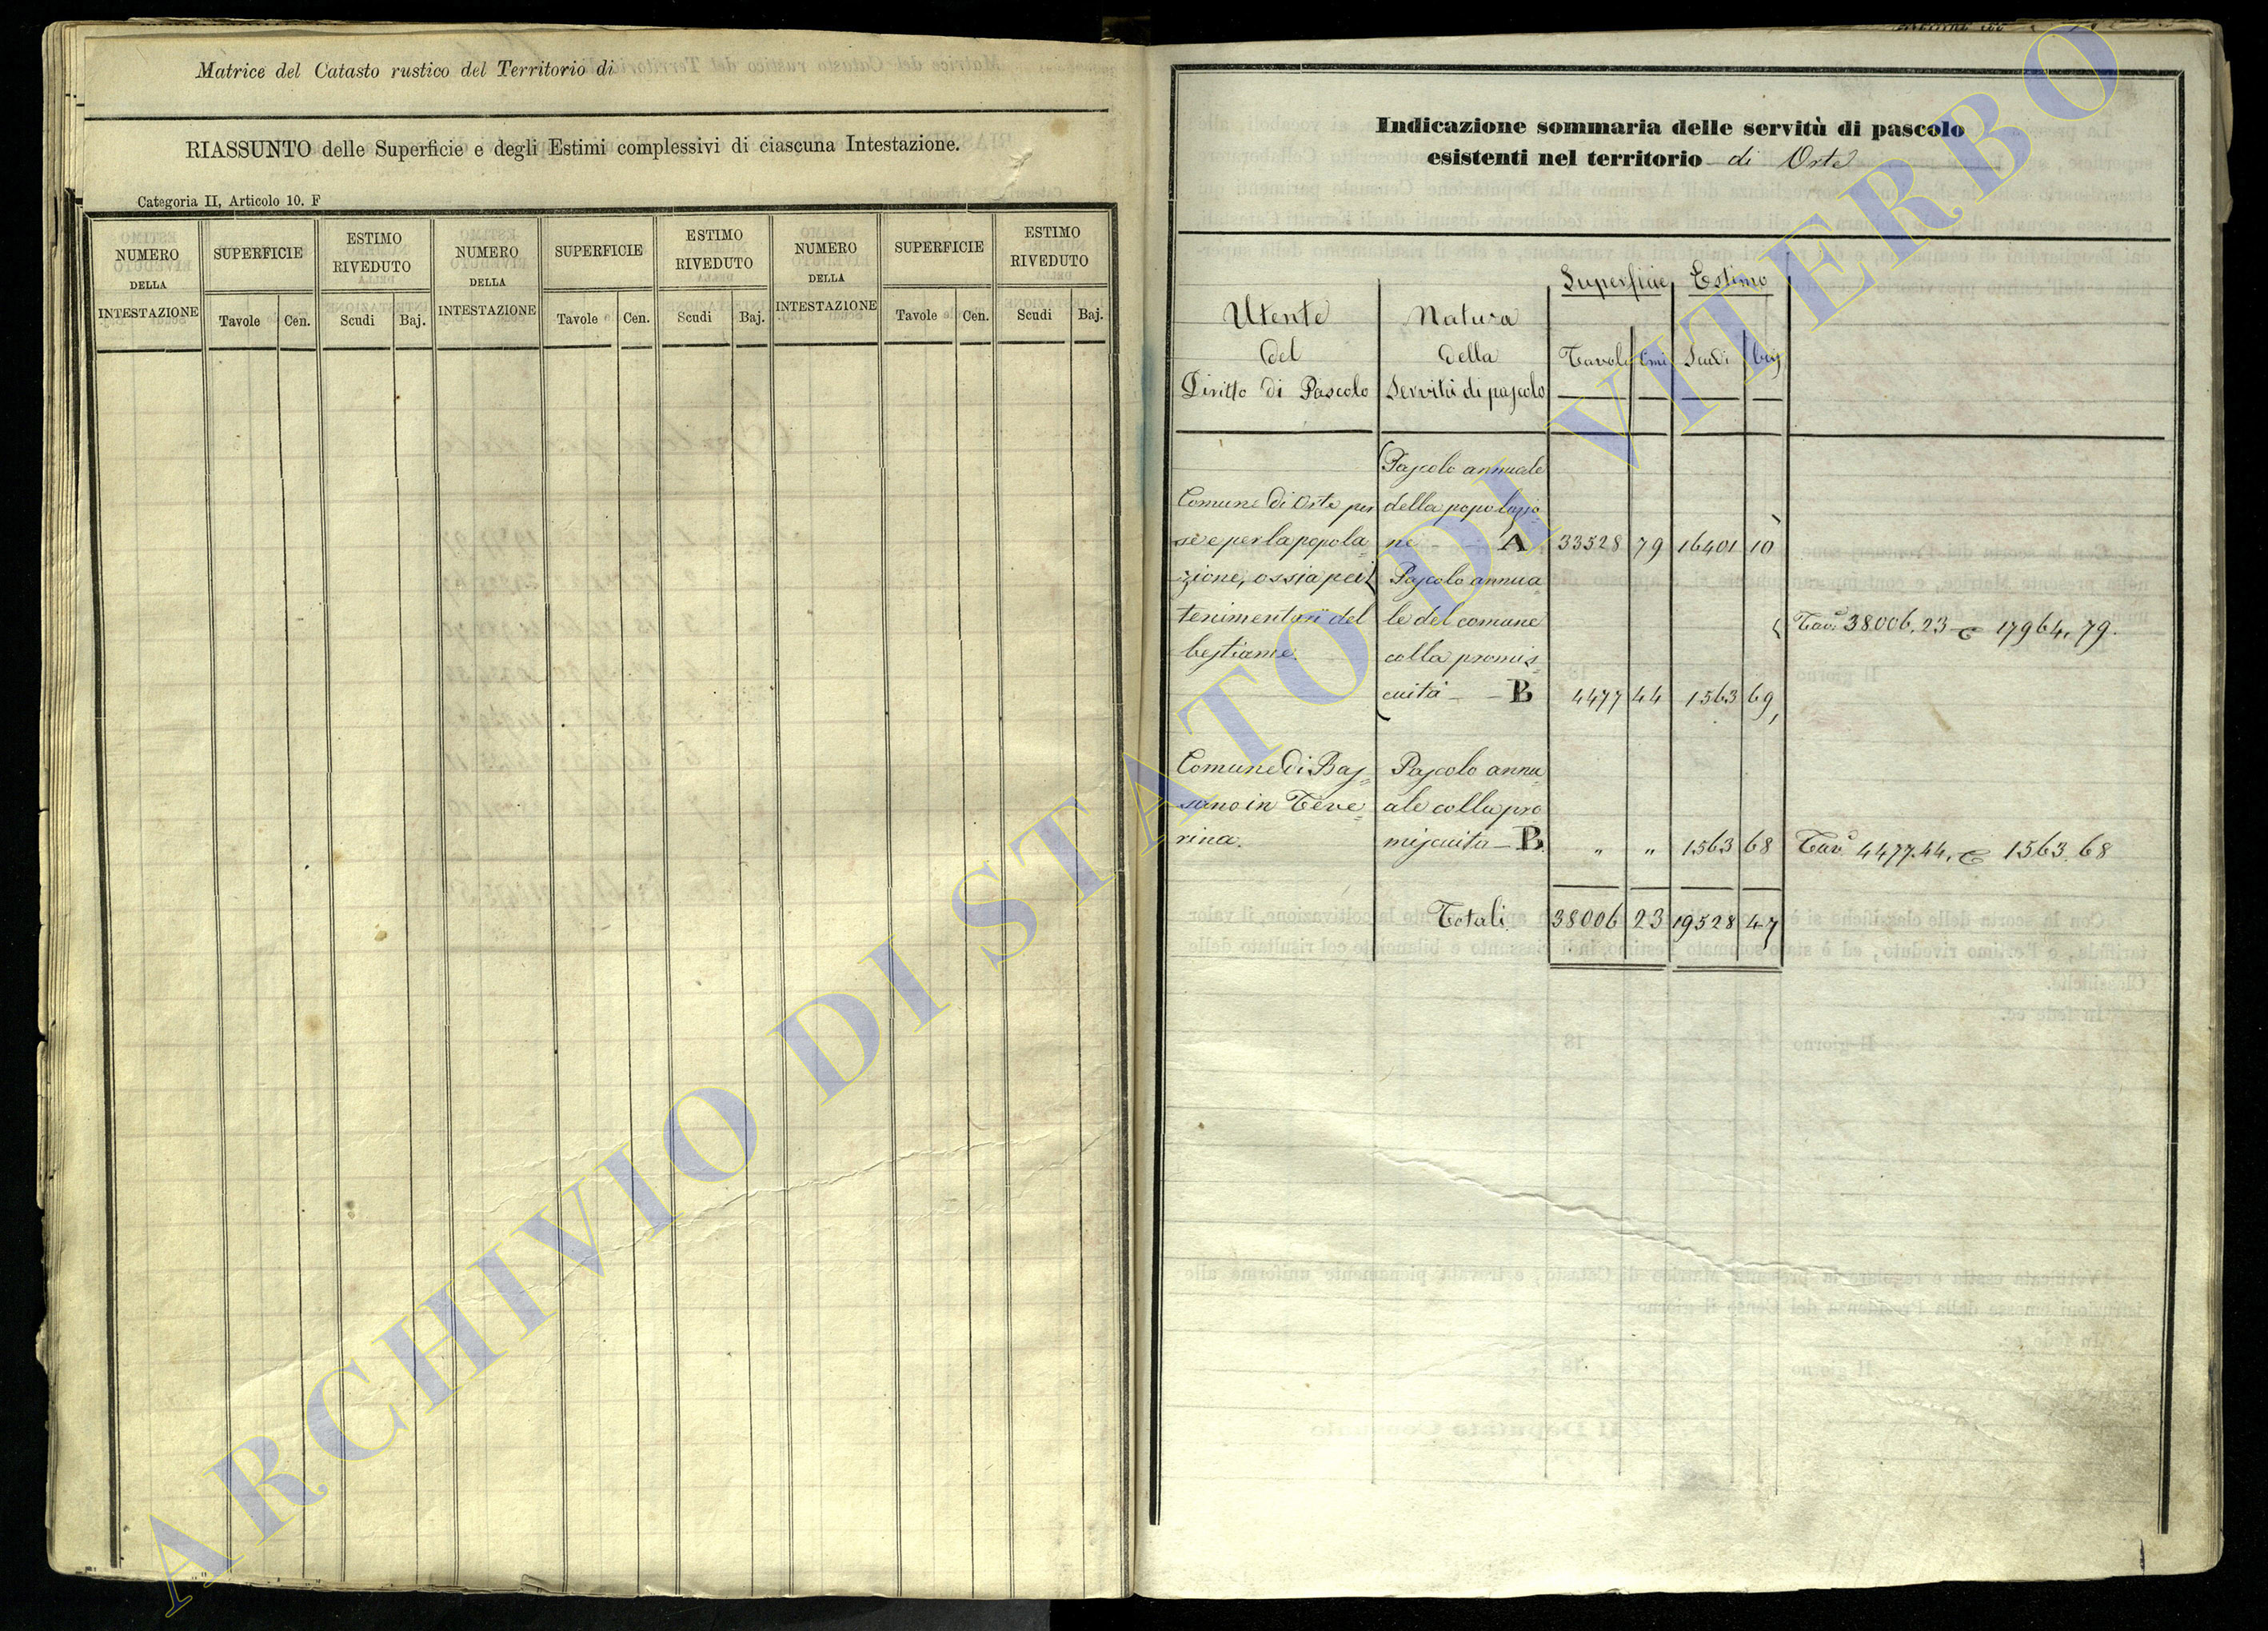 Matrice del Catasto rustico del Territorio di
RIASSUNTO delle Superficie e degli Estimi complessivi di ciascuna Intestazione.
Categoria II, Articolo 10. F
NUMERO DELLA INTESTAZIONE SUPERFICIE ESTIMO RIVEDUTO NUMERO DELLA INTESTAZIONE SUPERFICIE ESTIMO RIVEDUTO NUMERO DELLA INTESTAZIONE SUPERFICIE ESTIMO RIVEDUTO
Tavole Cen. Scudi Baj. Tavole Cen. Scudi Baj. Tavole Cen. Scudi Baj.
Indicazione sommaria delle servitù di pascolo
esistenti nel territorio di Orte
Superficie Estimo
Utente Natura
del della Tavole Cmi Scudi baj
Diritto di Pascolo Servitù di pascolo
Pascolo annuale
Comune di Orte per della popolazio
se e per la popola= ne A 33528 79 16401 10
zione, ossia pei Pascolo annua
tenimentarii del le del comune Tav.e 38006.23 17964.79.
bestiame. colla promis=
cuità - B 4477 44 1563 69
Comune di Bas= Pascolo annu
sano in Teve= ale colla pro
rina. miscuita - B. " " 1563 68 Tav.e 4477.44. 1563.68
Totali. 38006 23 19528 47
ARCHIVIO DI STATO DI VITERBO